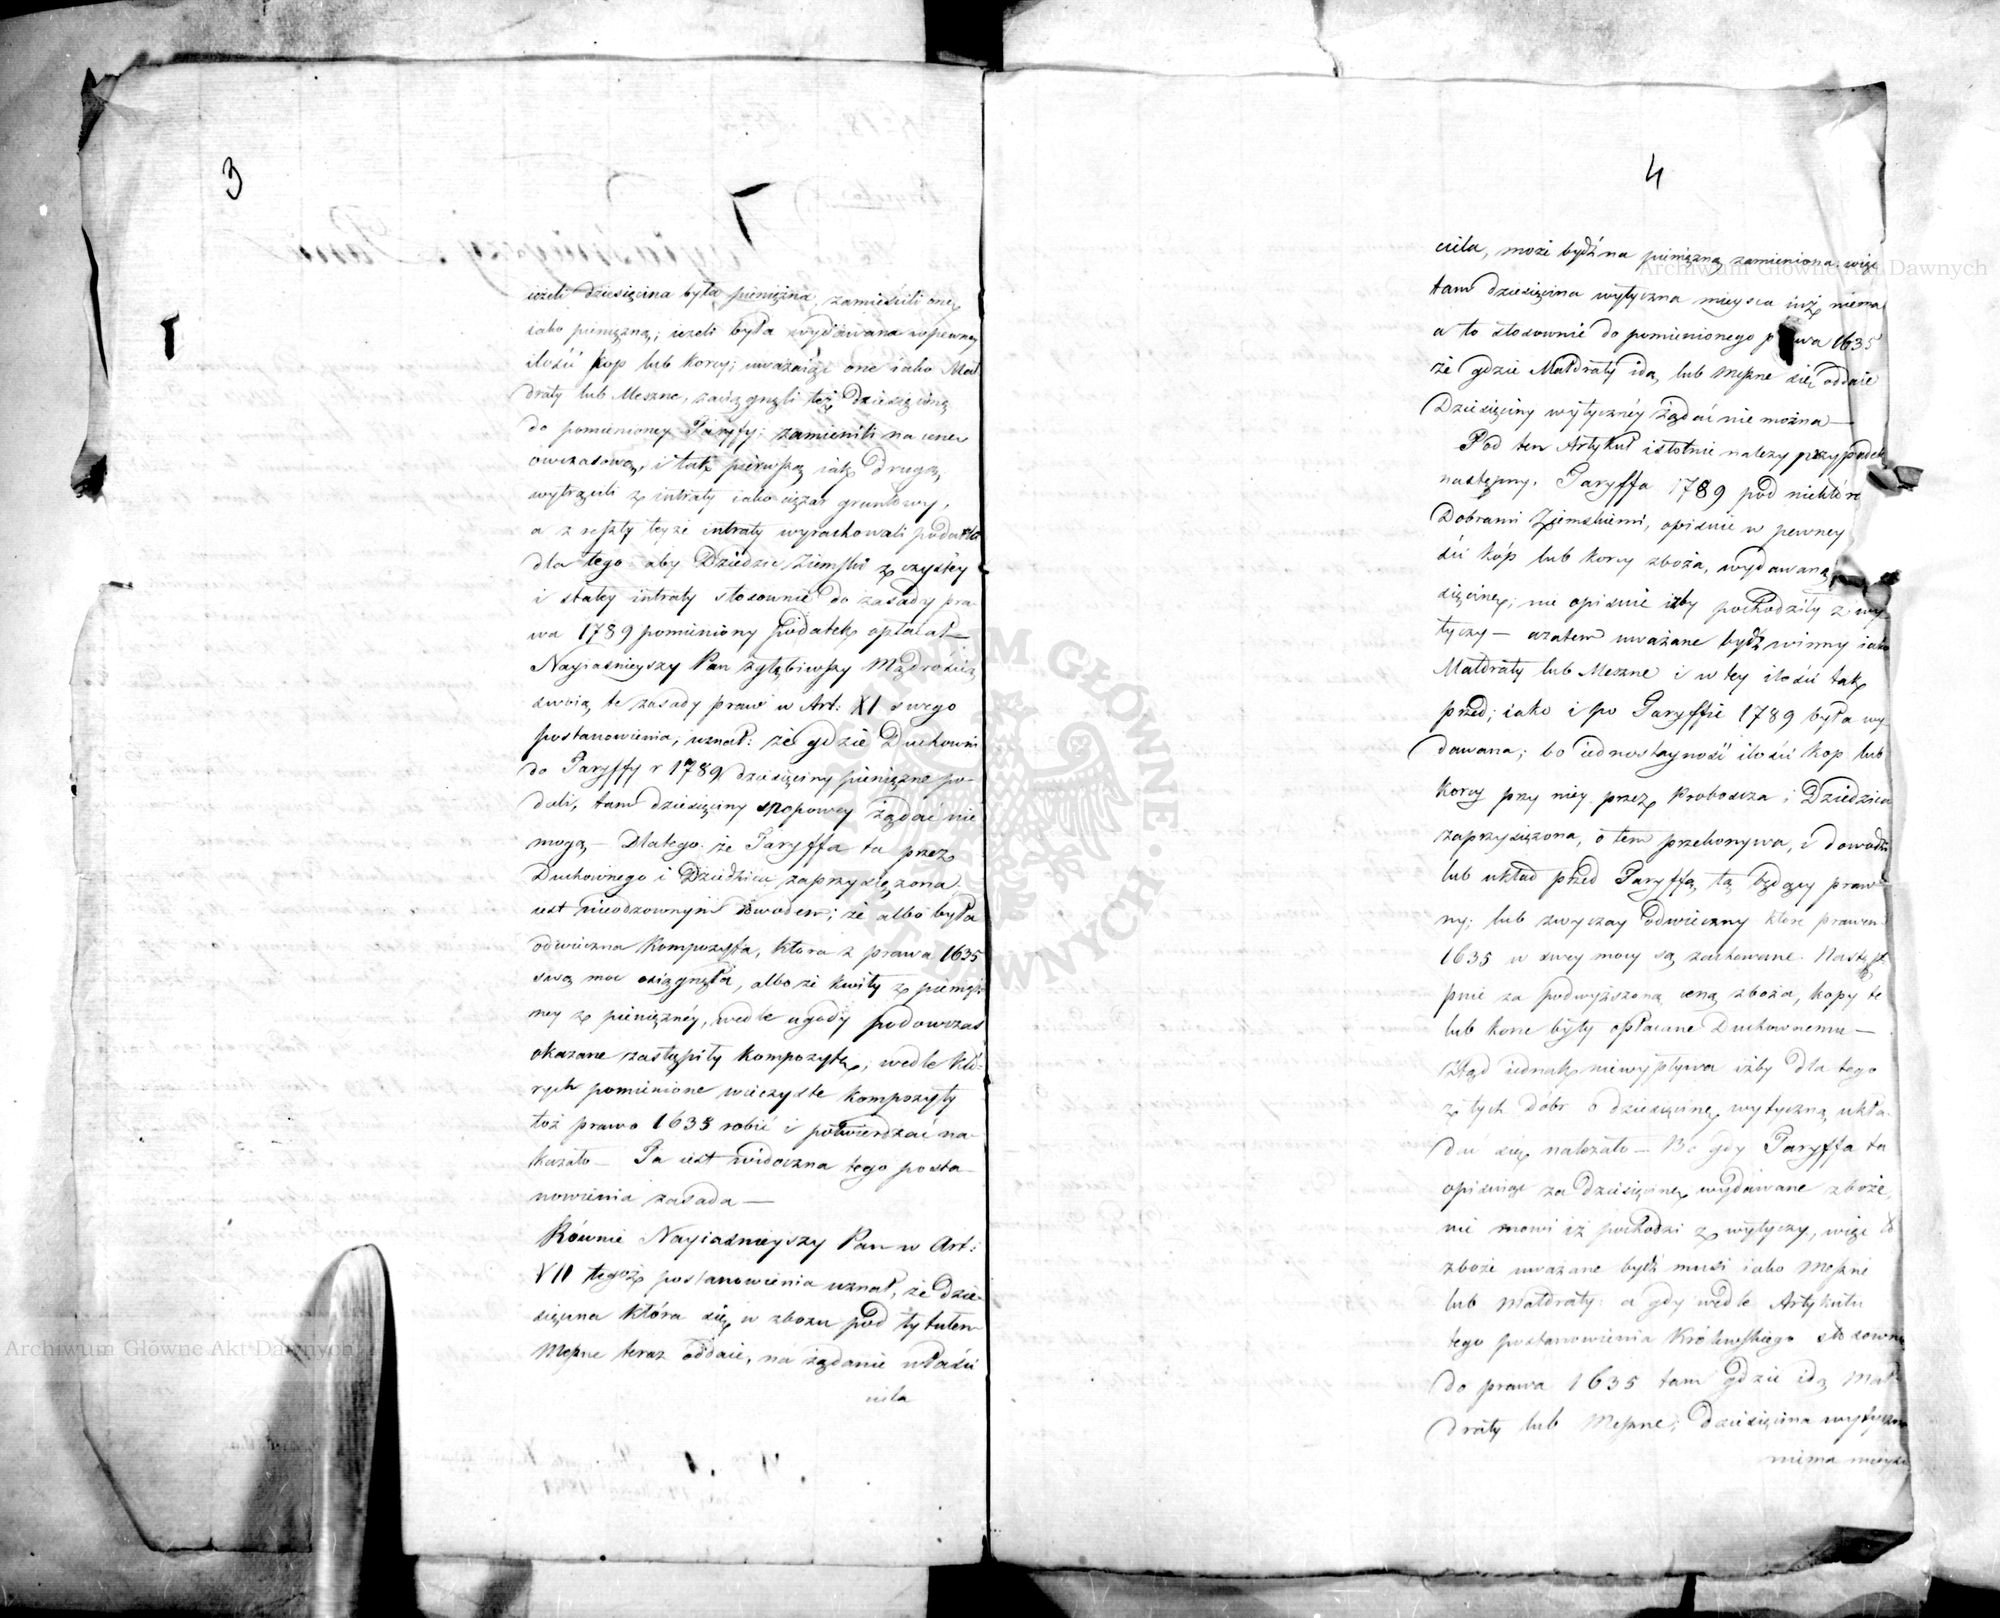 3
ieżeli dziesięcina była pieniężna, zamieścili onę
iako pieniężną; ieżeli była wydawana w pewney
ilości kop lub korcy; uważaiąc one iako Mał
draty lub Meszne, zaciągnęli też dziesięcinę
do pomienioney Taryffy; zamienili na cenę
owczasową, i tak pierwszą iak drugą,
wytrącili z intraty iako ciężar gruntowy,
a z reszty teyże intraty wyrachowali podatek
dla tego aby Dziedzic Ziemski z czystey
i stałey intraty stosownie do zasady pra-
wa 1789 pomieniony podatek opłacał —
Nayiaśnieyszy Pan zgłębiwszy Mądrością
swoią te zasady praw w Art: XI swego
postanowienia, uznał: że gdzie Duchowni
do Taryffy r 1789 dziesięciny pieniężne po-
dali, tam dziesięciny snopowey żądać nie
mogą — Dlatego że Taryffa ta przez
Duchownego i Dziedzica zaprzysiężona
iest nieodzownym dowodem; że albo była
odwieczna kompozyta, która z prawa 1635
swą moc osiągnęła, albo że kwity z pienięż-
ney z pieniężney, wedle ugody podowczas
okazane zastąpiły kompozytę; wedle któ-
rych pomienione wieczyste kompozyty
toż prawo 1635 robić i potwierdzać na-
kazało — Ta iest widoczna tego posta-
nowienia zasada —
Równie Nayiaśnieyszy Pan w Art:
VII tegoż postanowienia uznał, że dzie-
sięcina która się w zbożu pod tytułem
Meszne teraz oddaie, na żądanie właści
ciela
4
ciela, może bydź na pieniężną zamieniona więc
tam dziesięcina wytyczna mieysca iuż niema
a to stosownie do pomienionego prawa 1635
że gdzie Małdraty idą lub Meszne się oddaie
Dziesięciny wytyczney żądać nie można —
Pod ten Artykuł istotnie należy przypadek
następny. Taryffa 1789 pod niektóre
Dobrami Ziemskiemi, opisuie w pewney
ści kóp lub korcy zboża, wydawaną
sięcinę; nie opisuie iżby pochodziły z wy-
tyczy — azatem uważane bydź winny iako
Małdraty lub Meszne i w tey ilości tak
przed; iako i po Taryffie 1789 była wy
dawana; bo iednostayność ilości kop lub
korcy przy niey przez Proboszcza i Dziedzica
zaprzysiężona, o tem przekonywa, i dowodzi
lub układ przed Taryffą tą będący praw-
ny; lub zwyczay odwieczny które prawem
1635 w swey mocy są zachowane. Następ
pnie za podwyższoną ceną zboża, kopy te
lub korce były opłacane Duchownemu —
Ztąd iednak niewypływa iżby dla tego
z tych dóbr o dziesięcinę wytyczną ukła-
dać się należało — Bo gdy Taryffa ta
opisuiąc za dziesięcinę wydawane zboże,
nie mowi iż pochodzi z wytyczy, więc to
zboże uważane bydź musi iako Meszne
lub małdraty: a gdy wedle Artykułu
tego postanowienia Królewskiego stosownie
do prawa 1635 tam gdzie idą Mał-
draty lub Meszne; dziesięcina wytyczna
niema mieysca
Archiwum Główne Akt Dawnych
Archiwum Główne Akt Dawnych
ARCHIWUM GŁÓWNE AKT DAWNYCH